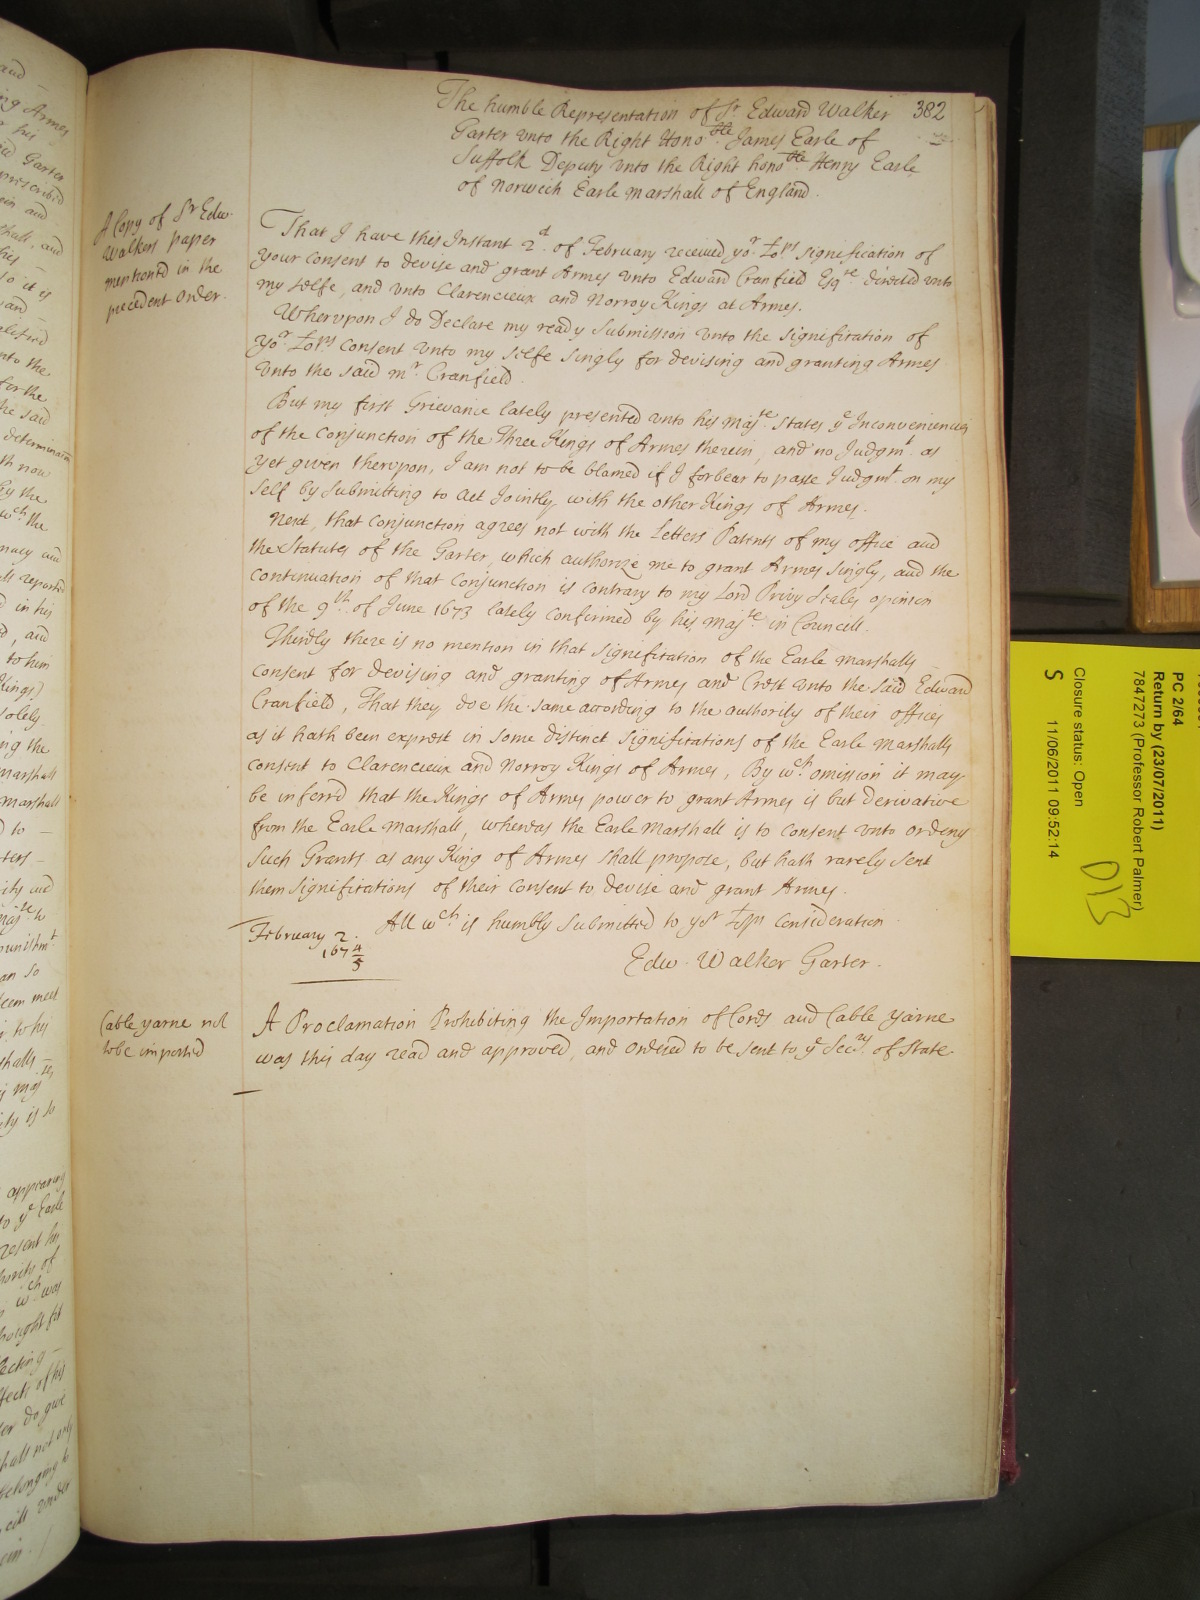 The humble Representation of Sr Edward Walker 382
Garter vnto the Right Honoble James Earle of
Suffolk Deputy vnto the Right honoble Henry Earle
of Norwich Earle Marshall of England.
A Copy of Sr Edw.
Walkers paper
mentioned in the
precedent Order.
That I have this Instant 2d. of February received yor Lops signification of
your Consent to devise and grant Armes vnto Edward Cranfield Esqre directed vnto
my selfe, and vnto Clarencieux and Norroy Kings at Armes.
Wherupon I do Declare my ready Submission vnto the signification of
yor Lops Consent vnto my selfe singly for devising and granting Armes
vnto the said mr. Cranfield.
But my first Grievance lately presented vnto his Majte States ye Inconveniencies
of the Conjunction of the Three Kings of Armes therein, and no Judgmt. as
yet given therupon, I am not to be blamed if I forbear to passe Judgmt. on my
self by submitting to act Jointly with the other Kings of Armes.
Next, that Conjunction agrees not with the Letters Patents of my office and
the Statutes of the Garter, which authorize me to grant Armes singly, and the
Continuation of that Conjunction is contrary to my Lord Privy Seales opinion
of the 9th. of June 1673 lately confirmed by his Majte in Councell.
Thirdly there is no mention in that signification of the Earle Marshalls
Consent for devising and granting of Armes and Crest vnto the said Edward
Cranfield, That they doe the same according to the authority of their offices
as it hath been exprest in some distinct significations of the Earle Marshalls
Consent to Clarencieux and Norroy Kings of Armes, By wch. omission it may
be inferrd that the Kings of Armes power to grant Armes is but derivative
from the Earle Marshall, whereas the Earle Marshall is to Consent vnto or deny
such Grants as any King of Armes shall propose, but hath rarely sent
them significations of their Consent to devise and grant Armes.
All wch is humbly submitted to yor Lops Consideration
February 2.
167 4/5
Edw. Walker Garter.
Cable yarne not
to be imported
A Proclamation Prohibiting the Importation of Cords and Cable yarne
was this day read and approved, and ordered to be sent to ye Secry. of State
PC 2/64
Return by (23/07/2011)
7847273 (Professor Robert Palmer)
Closure status: Open
S 11/06/2011 09:52:14